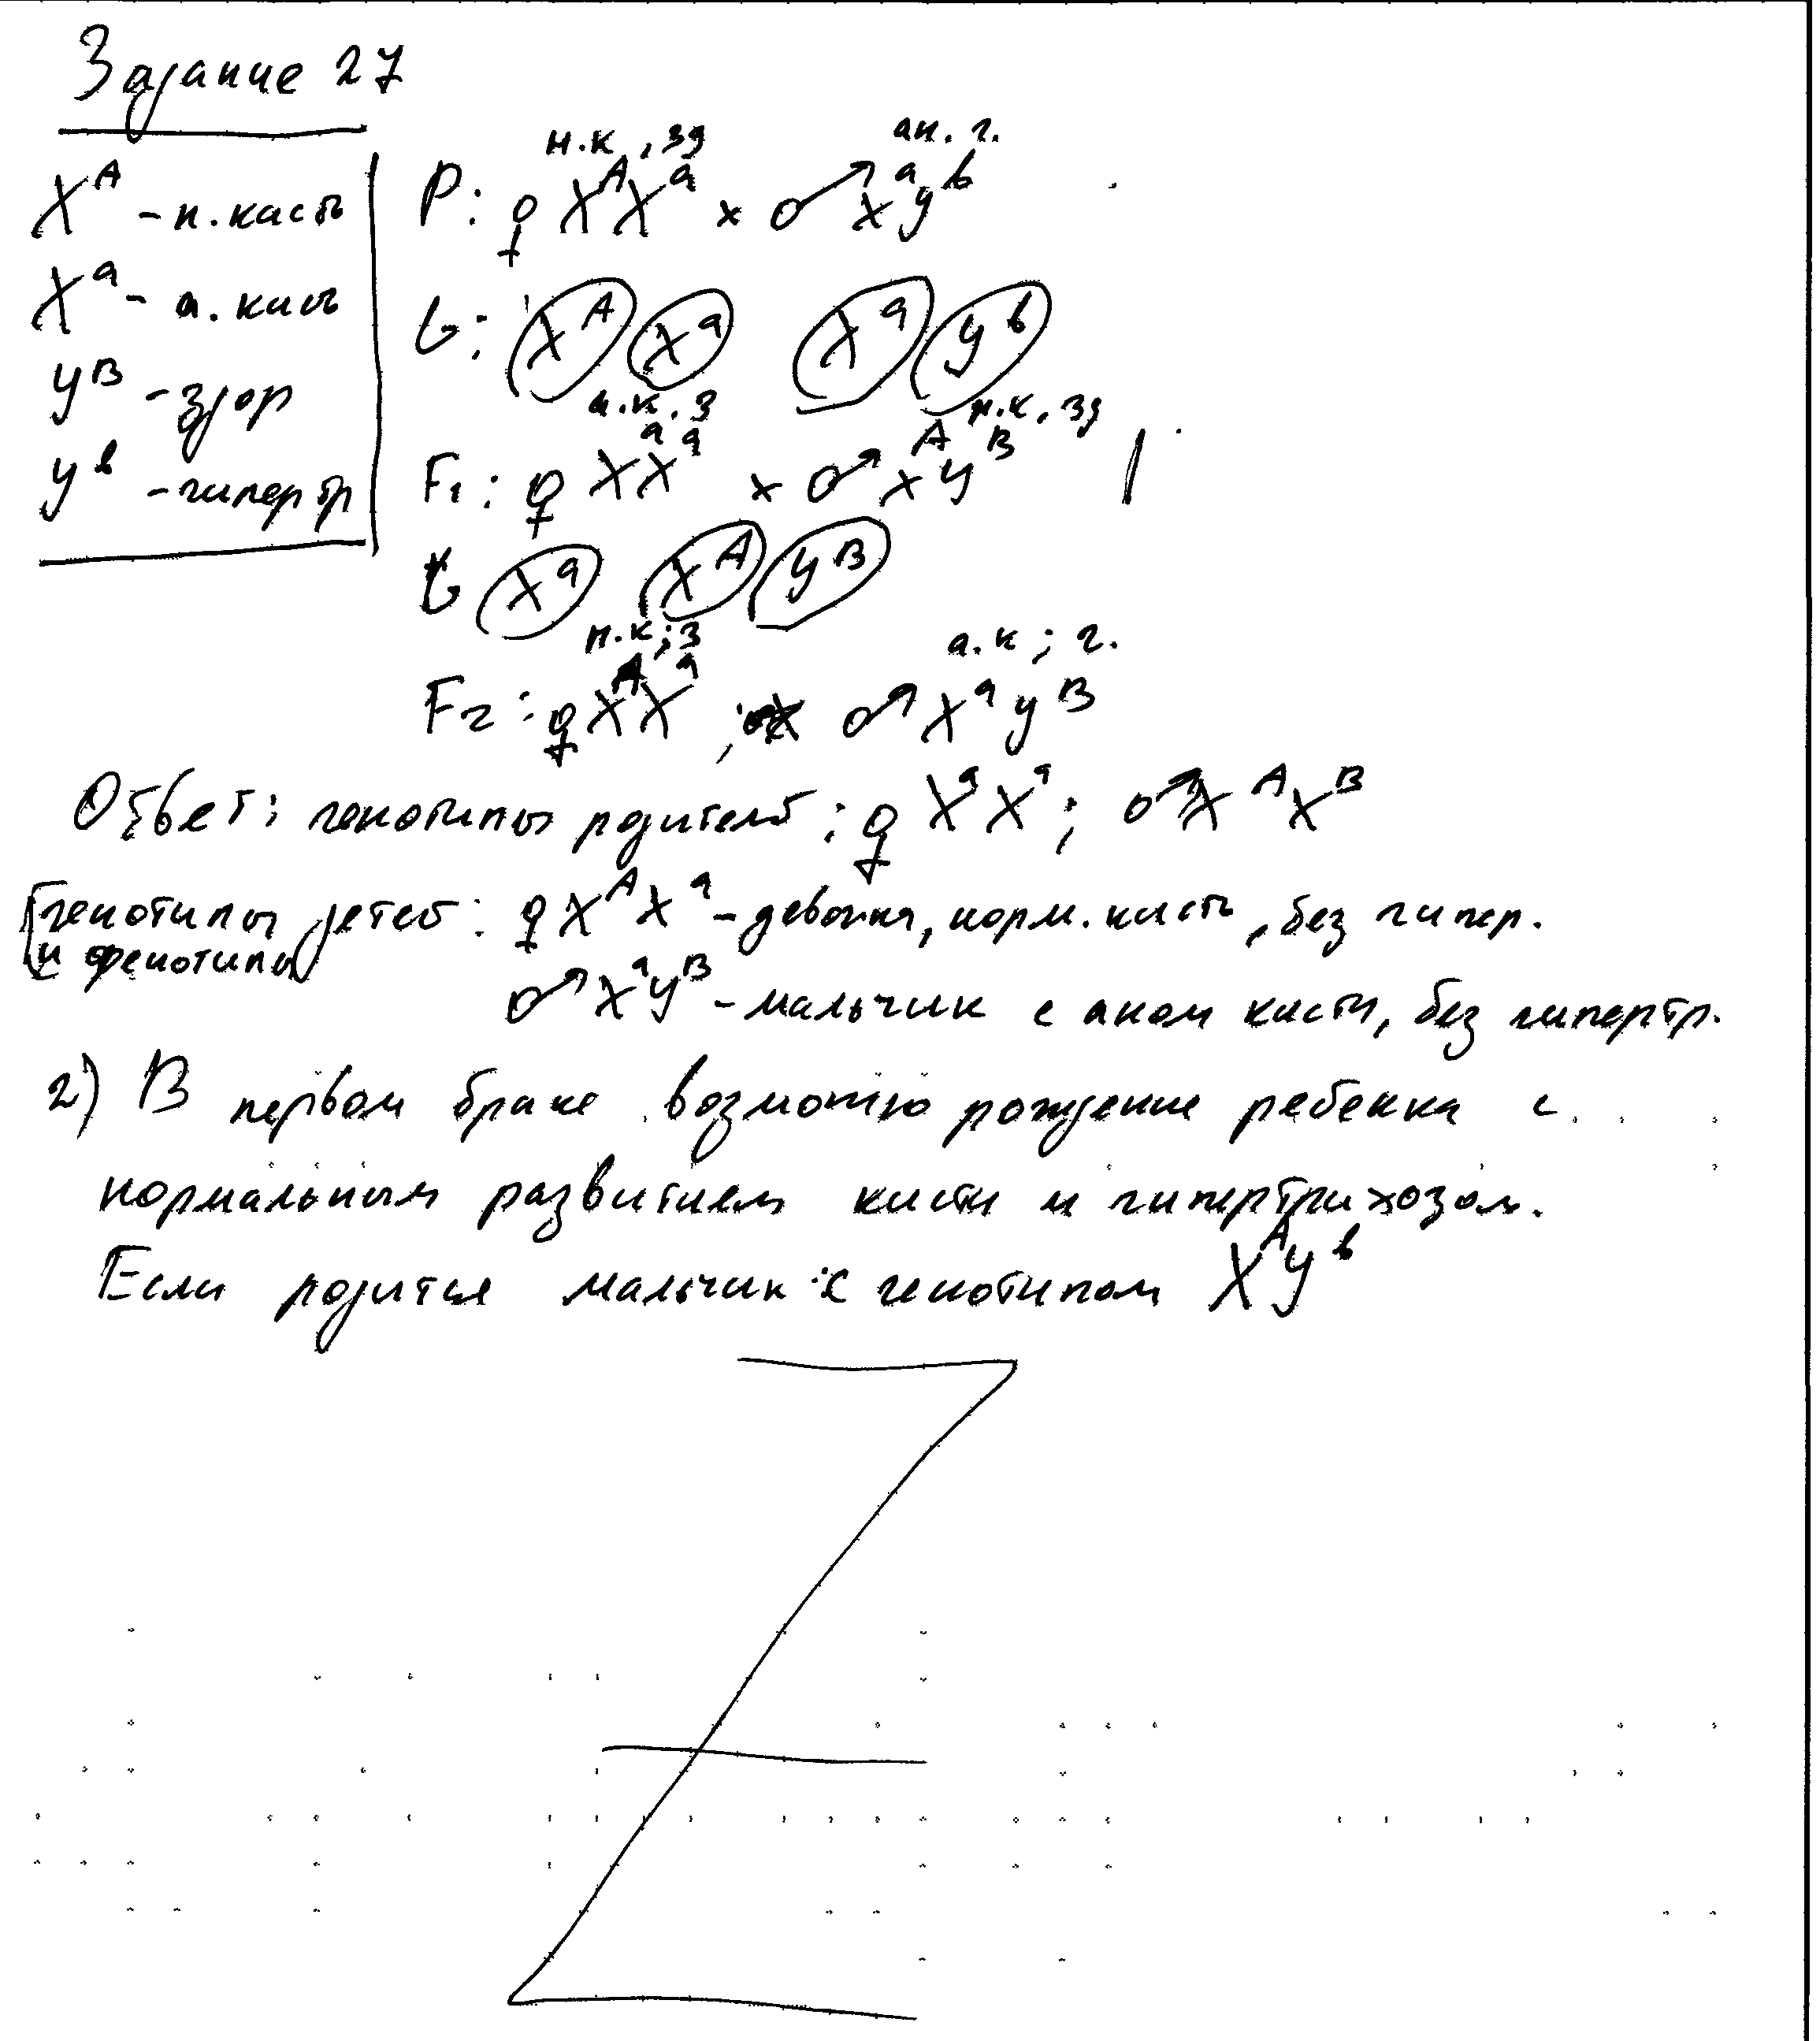 Задание 27
X^A - н. кисть
X^a - а. кисть
У^B - здор
У^b - гипертр
н.к, зд ан. г.
P: ♀ X^A X^a × ♂ X^a У^b
G: X^A X^a X^a У^b
а.к. з н.к, зд
F1: ♀ X^a X^a × ♂ X^A У^B
G X^a X^A У^B
н.к; з а.к; г.
F2: ♀ X^A X^a ; ♂ X^a У^B
Ответ: генотипы родителей: ♀ X^a X^a; ♂ X^A X^B
генотипы детей: ♀ X^A X^a - девочка, норм. кисть, без гипер.
и фенотипы
♂ X^a У^B - мальчик с аном кисти, без гипертр.
2) В первом браке возможно рождение ребенка с
нормальным развитием кисти и гипертрихозом.
Если родится мальчик с генотипом X^A У^b